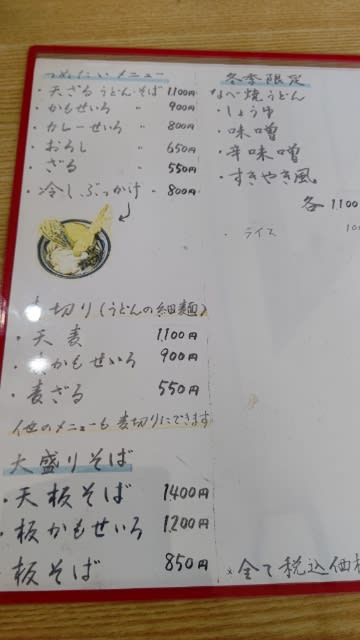 つめたいメニュー
・天ざるうどん・そば 1100円
・かもせいろ 〃 900円
・カレーせいろ 〃 800円
・おろし 〃 650円
・ざる 〃 550円
・冷しぶっかけ 〃 800円
切り(うどんの細麺)
・天麦 1,100円
かもせいろ 900円
・麦ざる 550円
他のメニューも麦切りにできます
大盛りそば
・天板そば 1400円
・板かもせいろ 1200円
・板そば 850円
冬季限定
なべ焼うどん
・しょうゆ
・味噌
・辛味噌
・すきやき風
各1100
・ライス
※全て税込価格